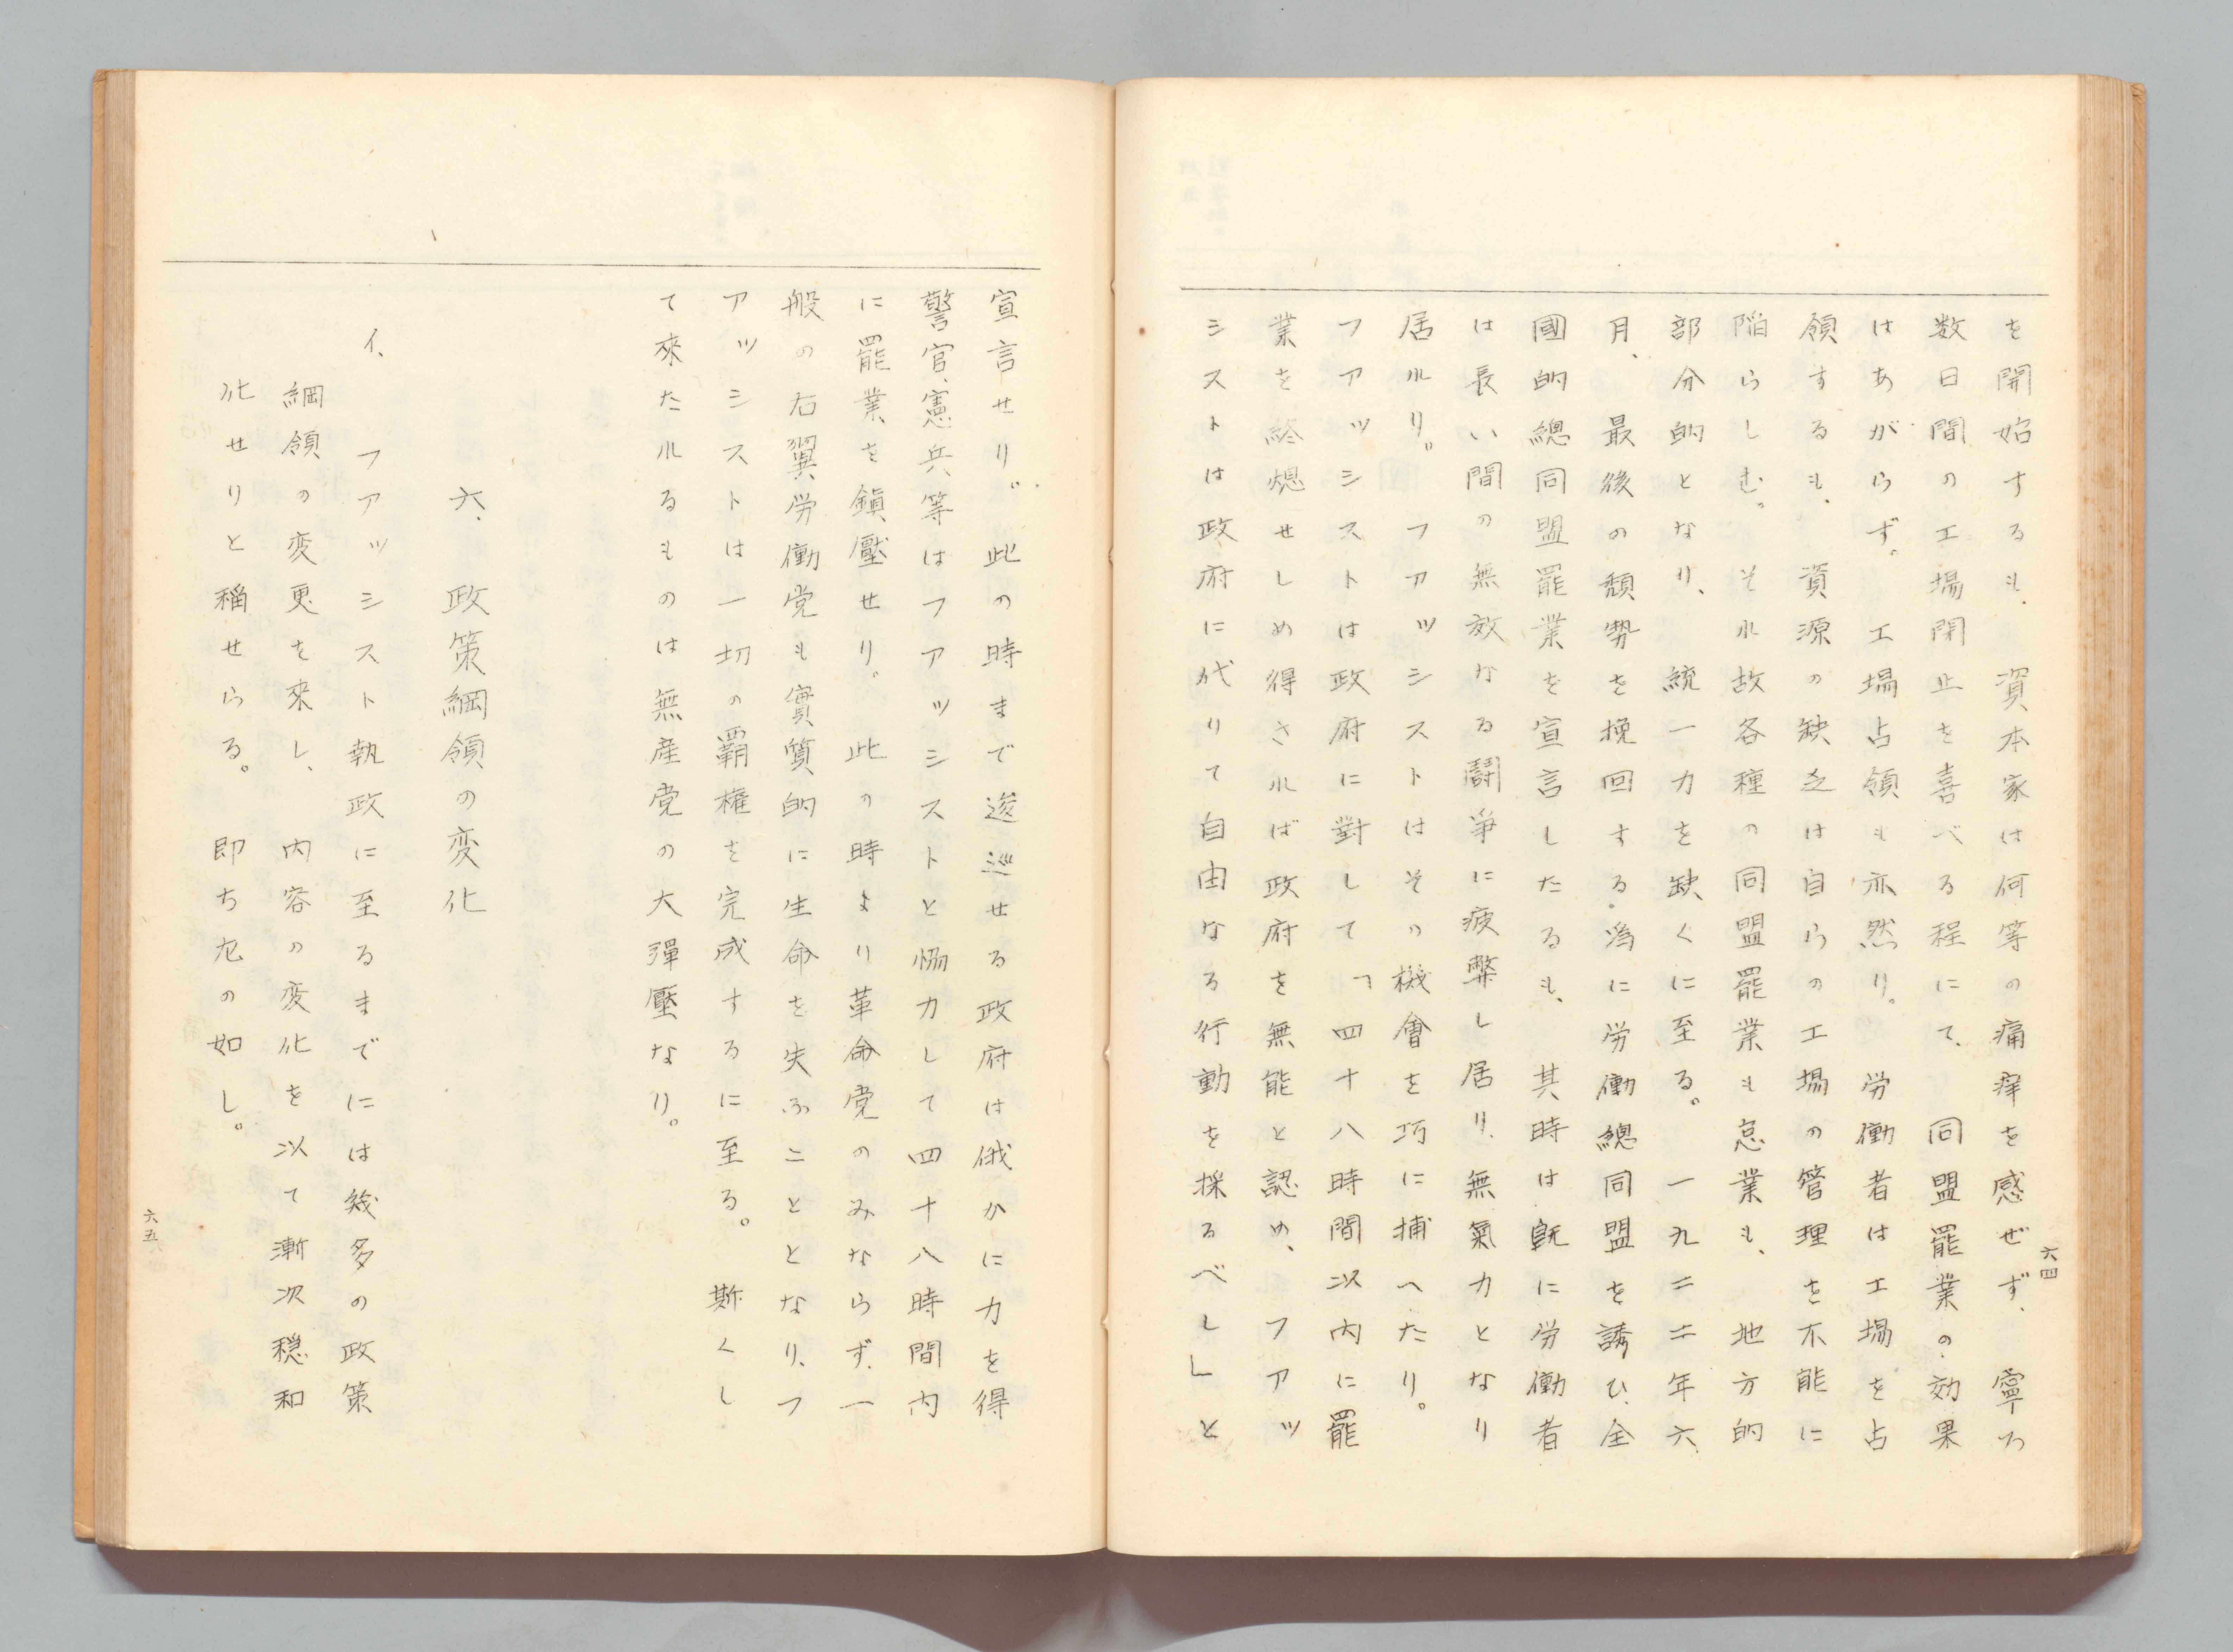 を開始するも、資本家は何等の痛痒を感ぜず、寧ろ
数日間の工場閉止を喜べる程にて、同盟罷業の効果
はあがらず。工場占領も亦然り。労働者は工場を占
領するも、資源の缺乏は自らの工場の管理を不能に
陥らしむ。それ故各種の同盟罷業も怠業も、地方的
部分的となり、統一力を缺くに至る。一九二二年六
月、最後の頽勢を挽回する為に労働總同盟を誘ひ、全
國的總同盟罷業を宣言したるも、其時は既に労働者
は長い間の無效なる鬪爭に疲弊し居り、無氣力となり
居れり。フアツシストはその機會を巧に捕へたり。
フアツシストは政府に對して「四十八時間以内に罷
業を終熄せしめ得されば政府を無能と認め、フアツ
シストは政府に代りて自由なる行動を採るべし」と
六四
宣言せり。此の時まで逡巡せる政府は俄かに力を得
警官、憲兵等はフアツシストと恊力して四十八時間内
に罷業を鎮壓せり。此の時より革命党のみならず、一
般の右翼労働党も實質的に生命を失ふこととなり、フ
アツシストは一切の覇権を完成するに至る。斯くし
て來たれるものは無産党の大彈壓なり。
六、政策綱領の変化
イ、フアツシスト執政に至るまでには幾多の政策
綱領の変更を來し、内容の変化を以て漸次穏和
化せりと稱せらる。即ち左の如し。
六五